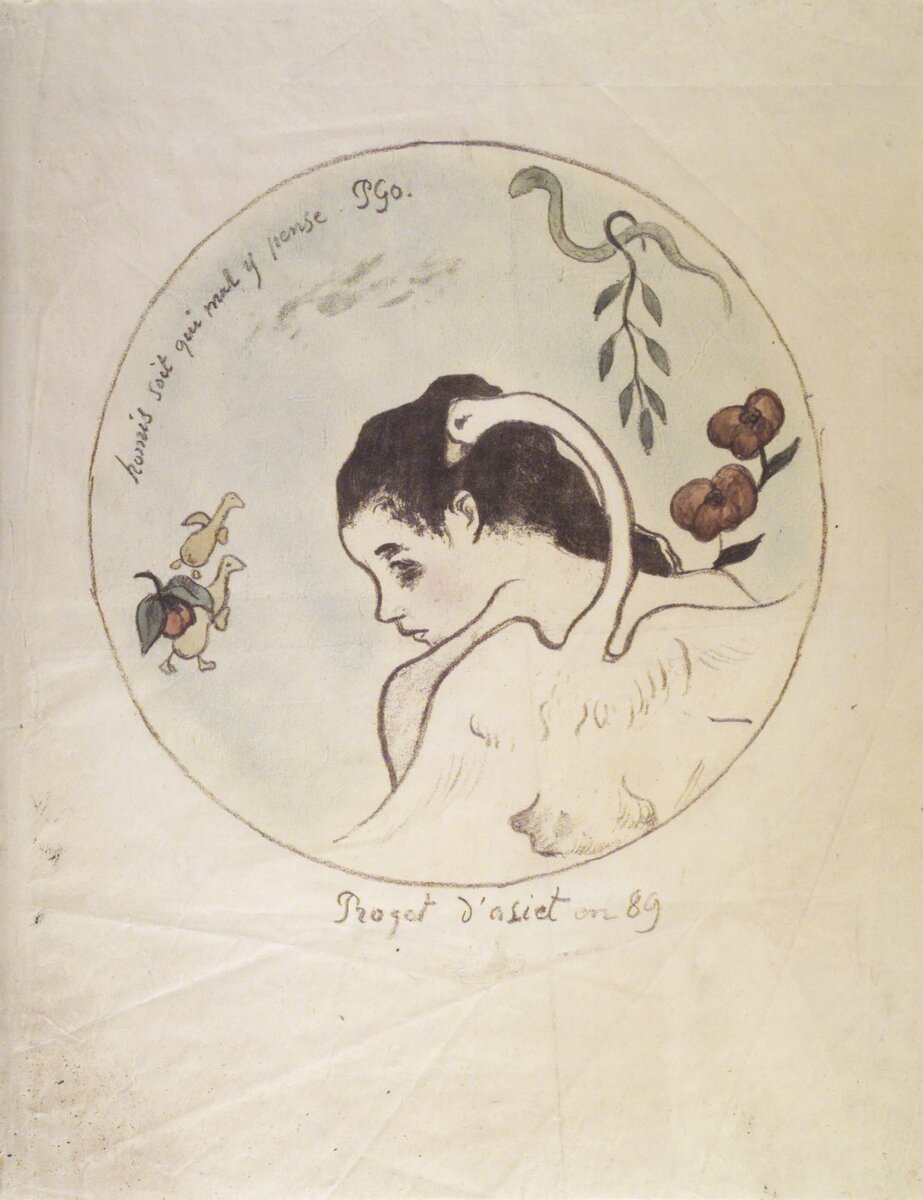 homis soit qui mal y pense. PGo.
Proget d'asiet en 89